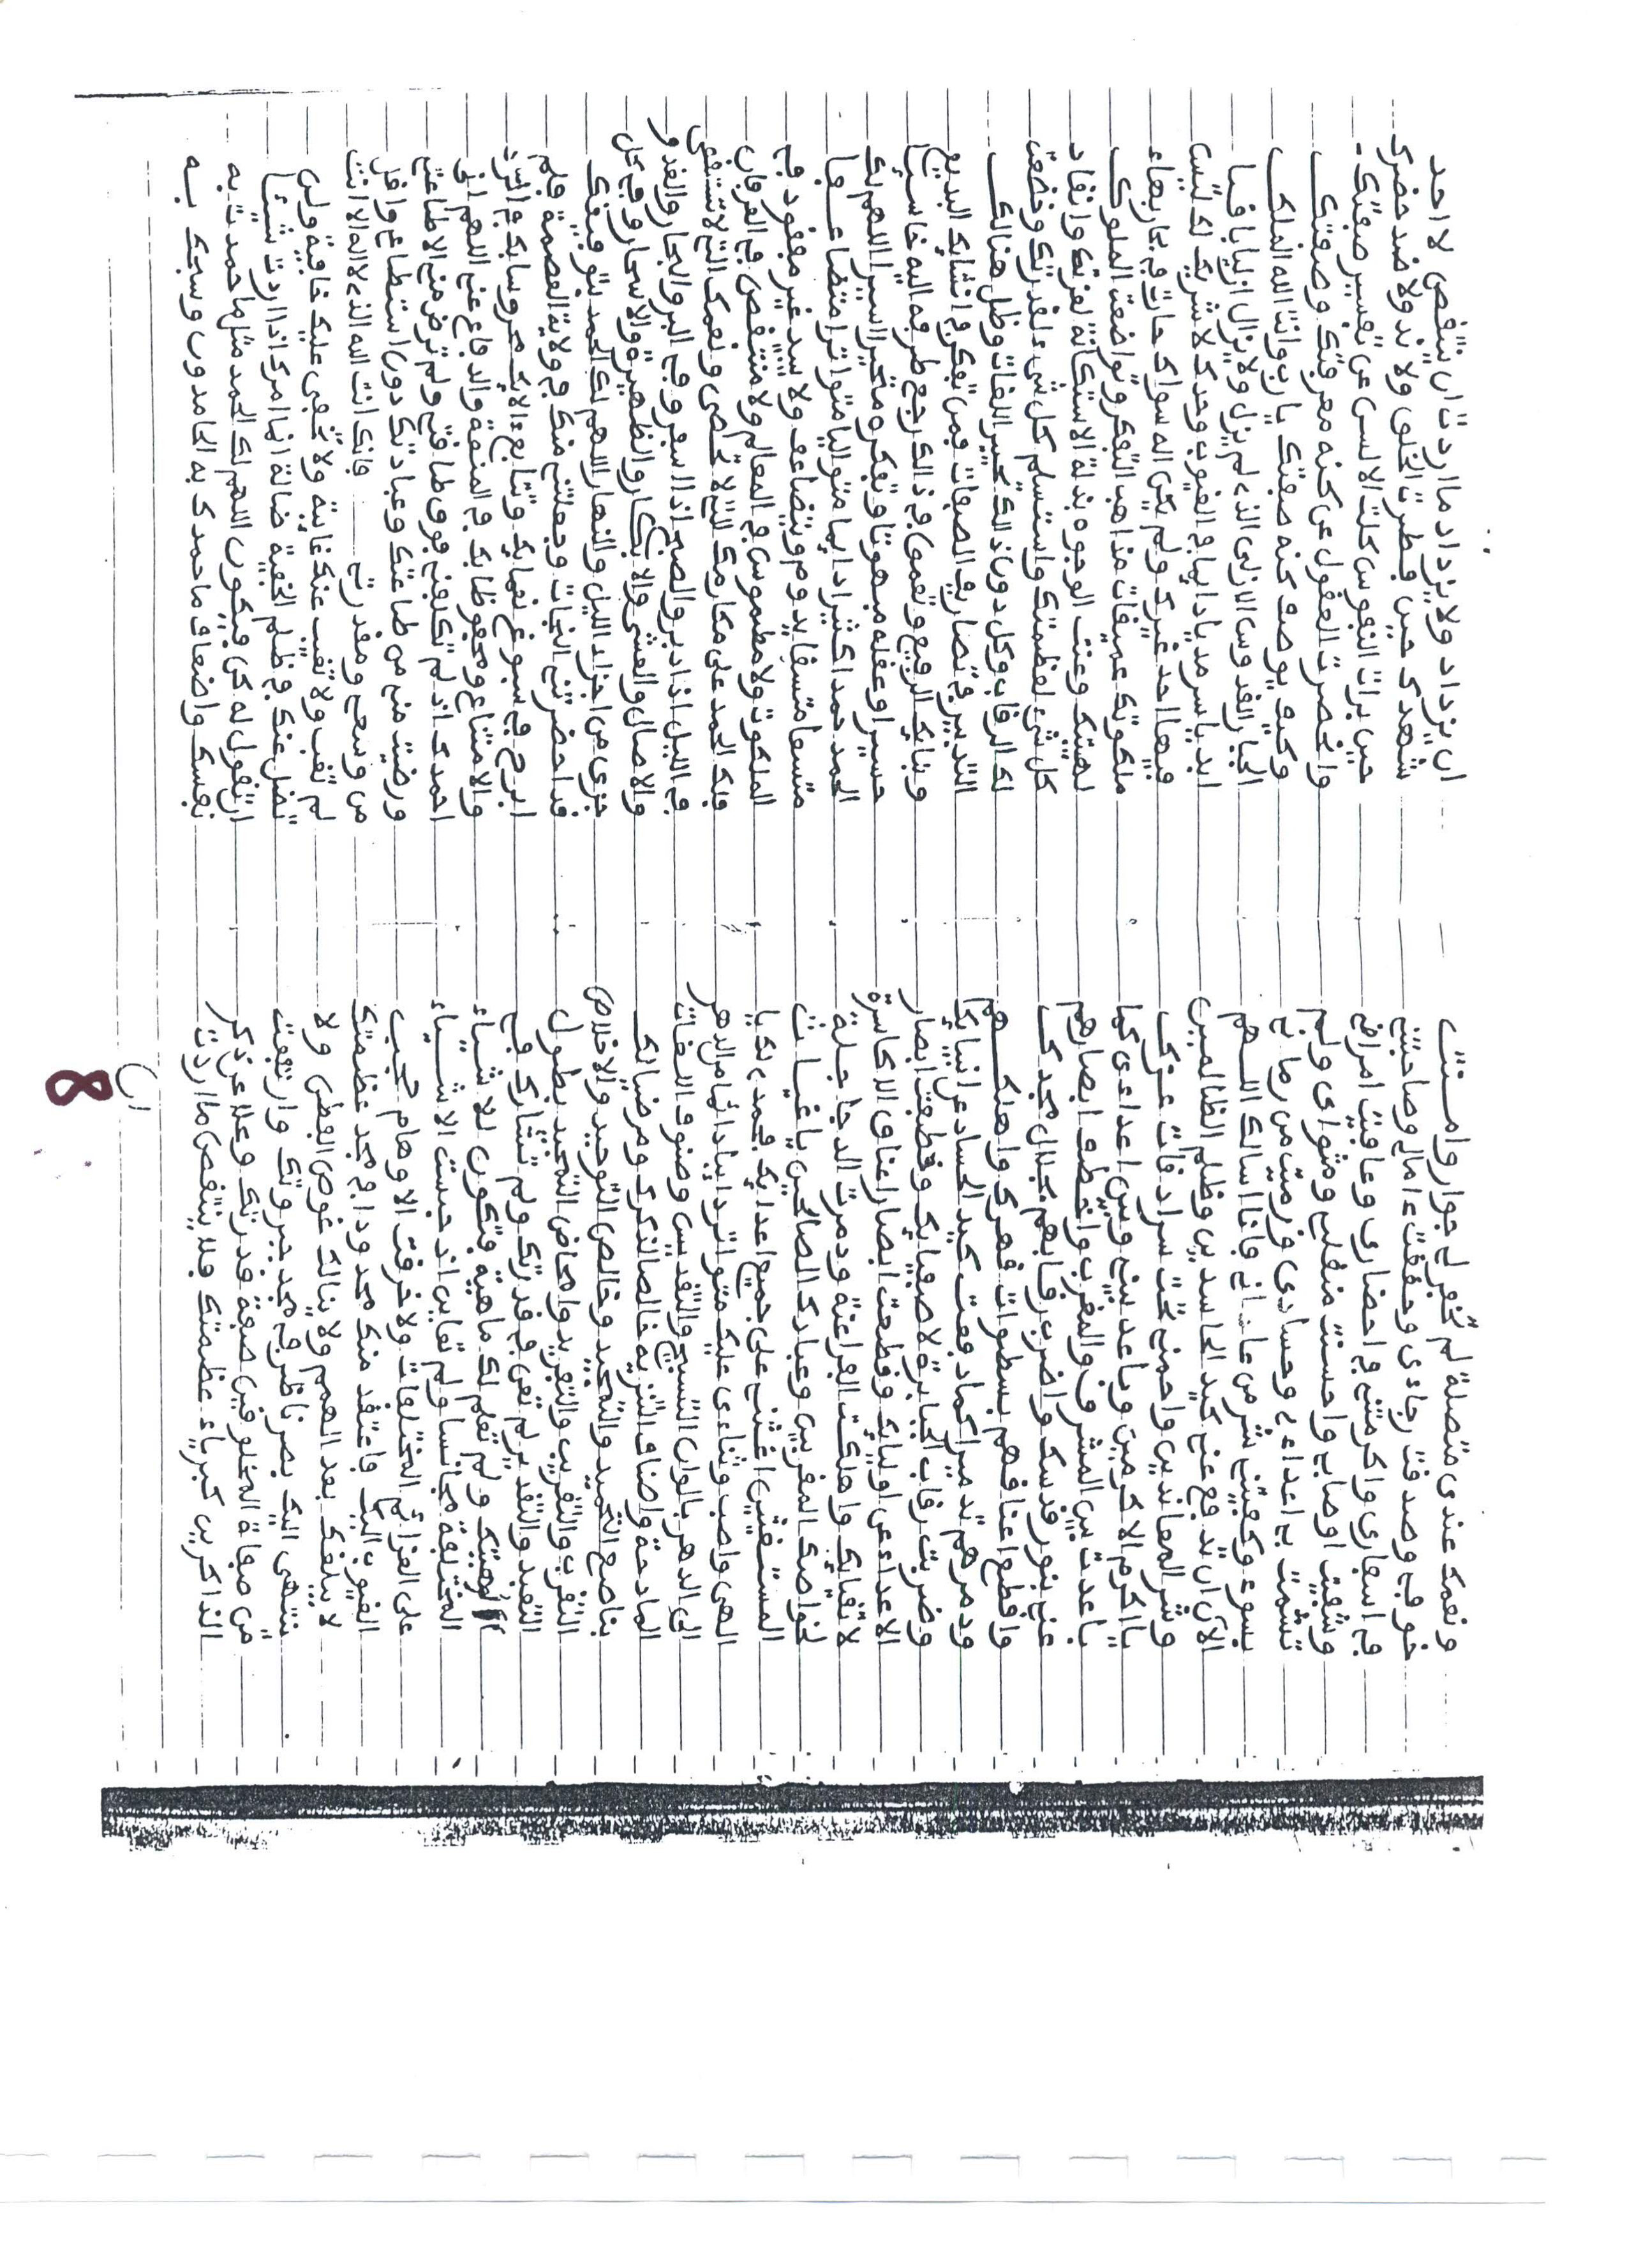 ونعمك عندى متصلة لم تخفر لى جوار وامنت
خوفى وصدقت رجاءى وحققت ءامالى وصاحبتنى
فى اسفارى واكرمتنى فى احضارى وعافيت امراضى
وشفيت اوصابى واحسنت منقلبى ومثواى ولم
تشمت بى اعداءى وحسادى ورميت من رمانى
بسوء وكفيتنى شر من عادانى فانا اسالك اللهم
الآن ان تدفع عنى كيد الحاسدين وظلم الظالمين
وشر المعاندين واحمنى تحت سرادقات عزك
يا اكرم الاكرمين وباعد بينى وبين اعداءى كما
باعدت بين المشرق والمغرب واخطف ابصارهم
عنى بنور قدسك واضرب رقابهم بجلال مجدك
واقطع اعناقهم بسطوات قهرك واهلكهم
ودمرهم تدميرا كما دفعت كيد الحساد عن انبيائك
وضربت رقاب الجبابرة لاصفيائك وخطفت ابصار
الاعداء عن اوليائك وقطعت اعناق الاكاسرة
لاتقيائك واهلكت الفراعنة ودمرت الدجاجلة
لخواصك المقربين وعبادك الصالحين يا غياث
المستغيثين اغثنى على جميع اعدائك فحمدى لك يا
الهى واصب وثناءى عليك متواتر دايبا دائما من الدهر
الى الدهر بالوان التسبيح والتقديس وصنوف اللغات
المادحة واصناف التنزيه خالصا لذكرك ومرضيا لك
بناصع التحميد والتمجيد وخالص التوحيد والاخلاص
التقرب والتقريب والتفريد وامحاض التمجيد بطول
التعبد والتعديد لم تعن فى قدرتك ولم تشارك فى
الهيتك ولم تعلم لك ماهية فتكون للاشياء
المختلفة مجانسا ولم تعاين اذ حبست الاشياء
على العزائم المختلفات ولا خرقت الاوهام حجب
الغيوب اليك فاعتقد منك محدودا فى مجد عظمتك
لا يبلغك بعد الهمم ولا ينالك غوص الفطن ولا
ينتهى اليك بصر ناظر فى مجد جبروتك وارتفعت
عن صفاة المخلوقين صفة قدرتك وعلا عن ذكر
الذاكرين كبرياء عظمتك فلا ينتقص ما اردت
ان
8
ان يزداد ولا يزداد ما اردت ان ينتقص لا احد
شهدك حين فطرت الخلق ولا ند ولا ضد حضرك
حين برات النفوس كلت الالسن عن تفسير صفتك
وانحصرت العقول عن كنه معرفتك وصفتك
وكيف يوصف كنه صفتك يا رب وانت الله الملك
الجبار القدوس الازلى الذى لم يزل ولا يزال ازليا باقيا
ابديا سرمديا دايما فى الغيوب وحدك لا شريك لك ليس
فيها احد غيرك ولم يكن اله سواك حارت فى بحار بهاء
ملكوتك عميقات مذاهب التفكر وتواضعت الملوك
لهيبتك وعنت الوجوه بذلة الاستكانة لعزتك وانقاد
كل شىء لعظمتك واستسلم كل شىء لقدرتك وخضعت
لك الرقاب وكل دون ذلك تحبير اللغات وضل هنالك
التدبير فى تصاريف الصفات فمن تفكر فى انشائك البديع
وثنائك الرفيع وتعمق فى ذالك رجع طرفه اليه خاسئا
حسيرا وعقله مبهوتا وتفكره متحيرا اسيرا اللهم لك
الحمد حمدا كثيرا دايما متواليا متواترا متضاعفا
متسعا متسقا يدوم ويتضاعف ولا يبيد غير مفقود فى
الملكوت ولا مطموس فى المعالم ولا منتقص فى العرفان
فلك الحمد على مكارمك التى لا تحصى ونعمك التى لا تستقصى
فى الليل اذا ادبر والصبح اذا اسفر وفى البر والبحار والغدو
والاصال والعشى والابكار والظهيرة والاسحار وفى كل
جزى من اجزاء الليل والنهار اللهم لك الحمد بتوفيقك
قد احضرتنى النجاة وجعلتنى منك فى ولاية العصمة فلم
ابرح فى سبوغ نعمايك وتتابع ءالايك محروسا بك فى الرد
والامتناع ومحفوظا بك فى المنعة والدفاع عنى اللهم انى
احمدك اذ لم تكلفنى فوق طاقتى ولم ترض منى الا طاعتى
ورضيت منى من طاعتك وعبادتك دون استطاعتى واقل
من وسعى ومقدرتى فانك انت الله الذى لا اله الا انت
لم تغب ولا تغيب عنك غايبة ولا تخفى عليك خافية ولن
تضل عنك فى ظلم الخفية ضالة انما امرك اذا اردت شيئا
ان تقول له كن فيكون اللهم لك الحمد مثل ما حمدت به
نفسك واضعاف ما حمدك به الحامدون وسبحك به